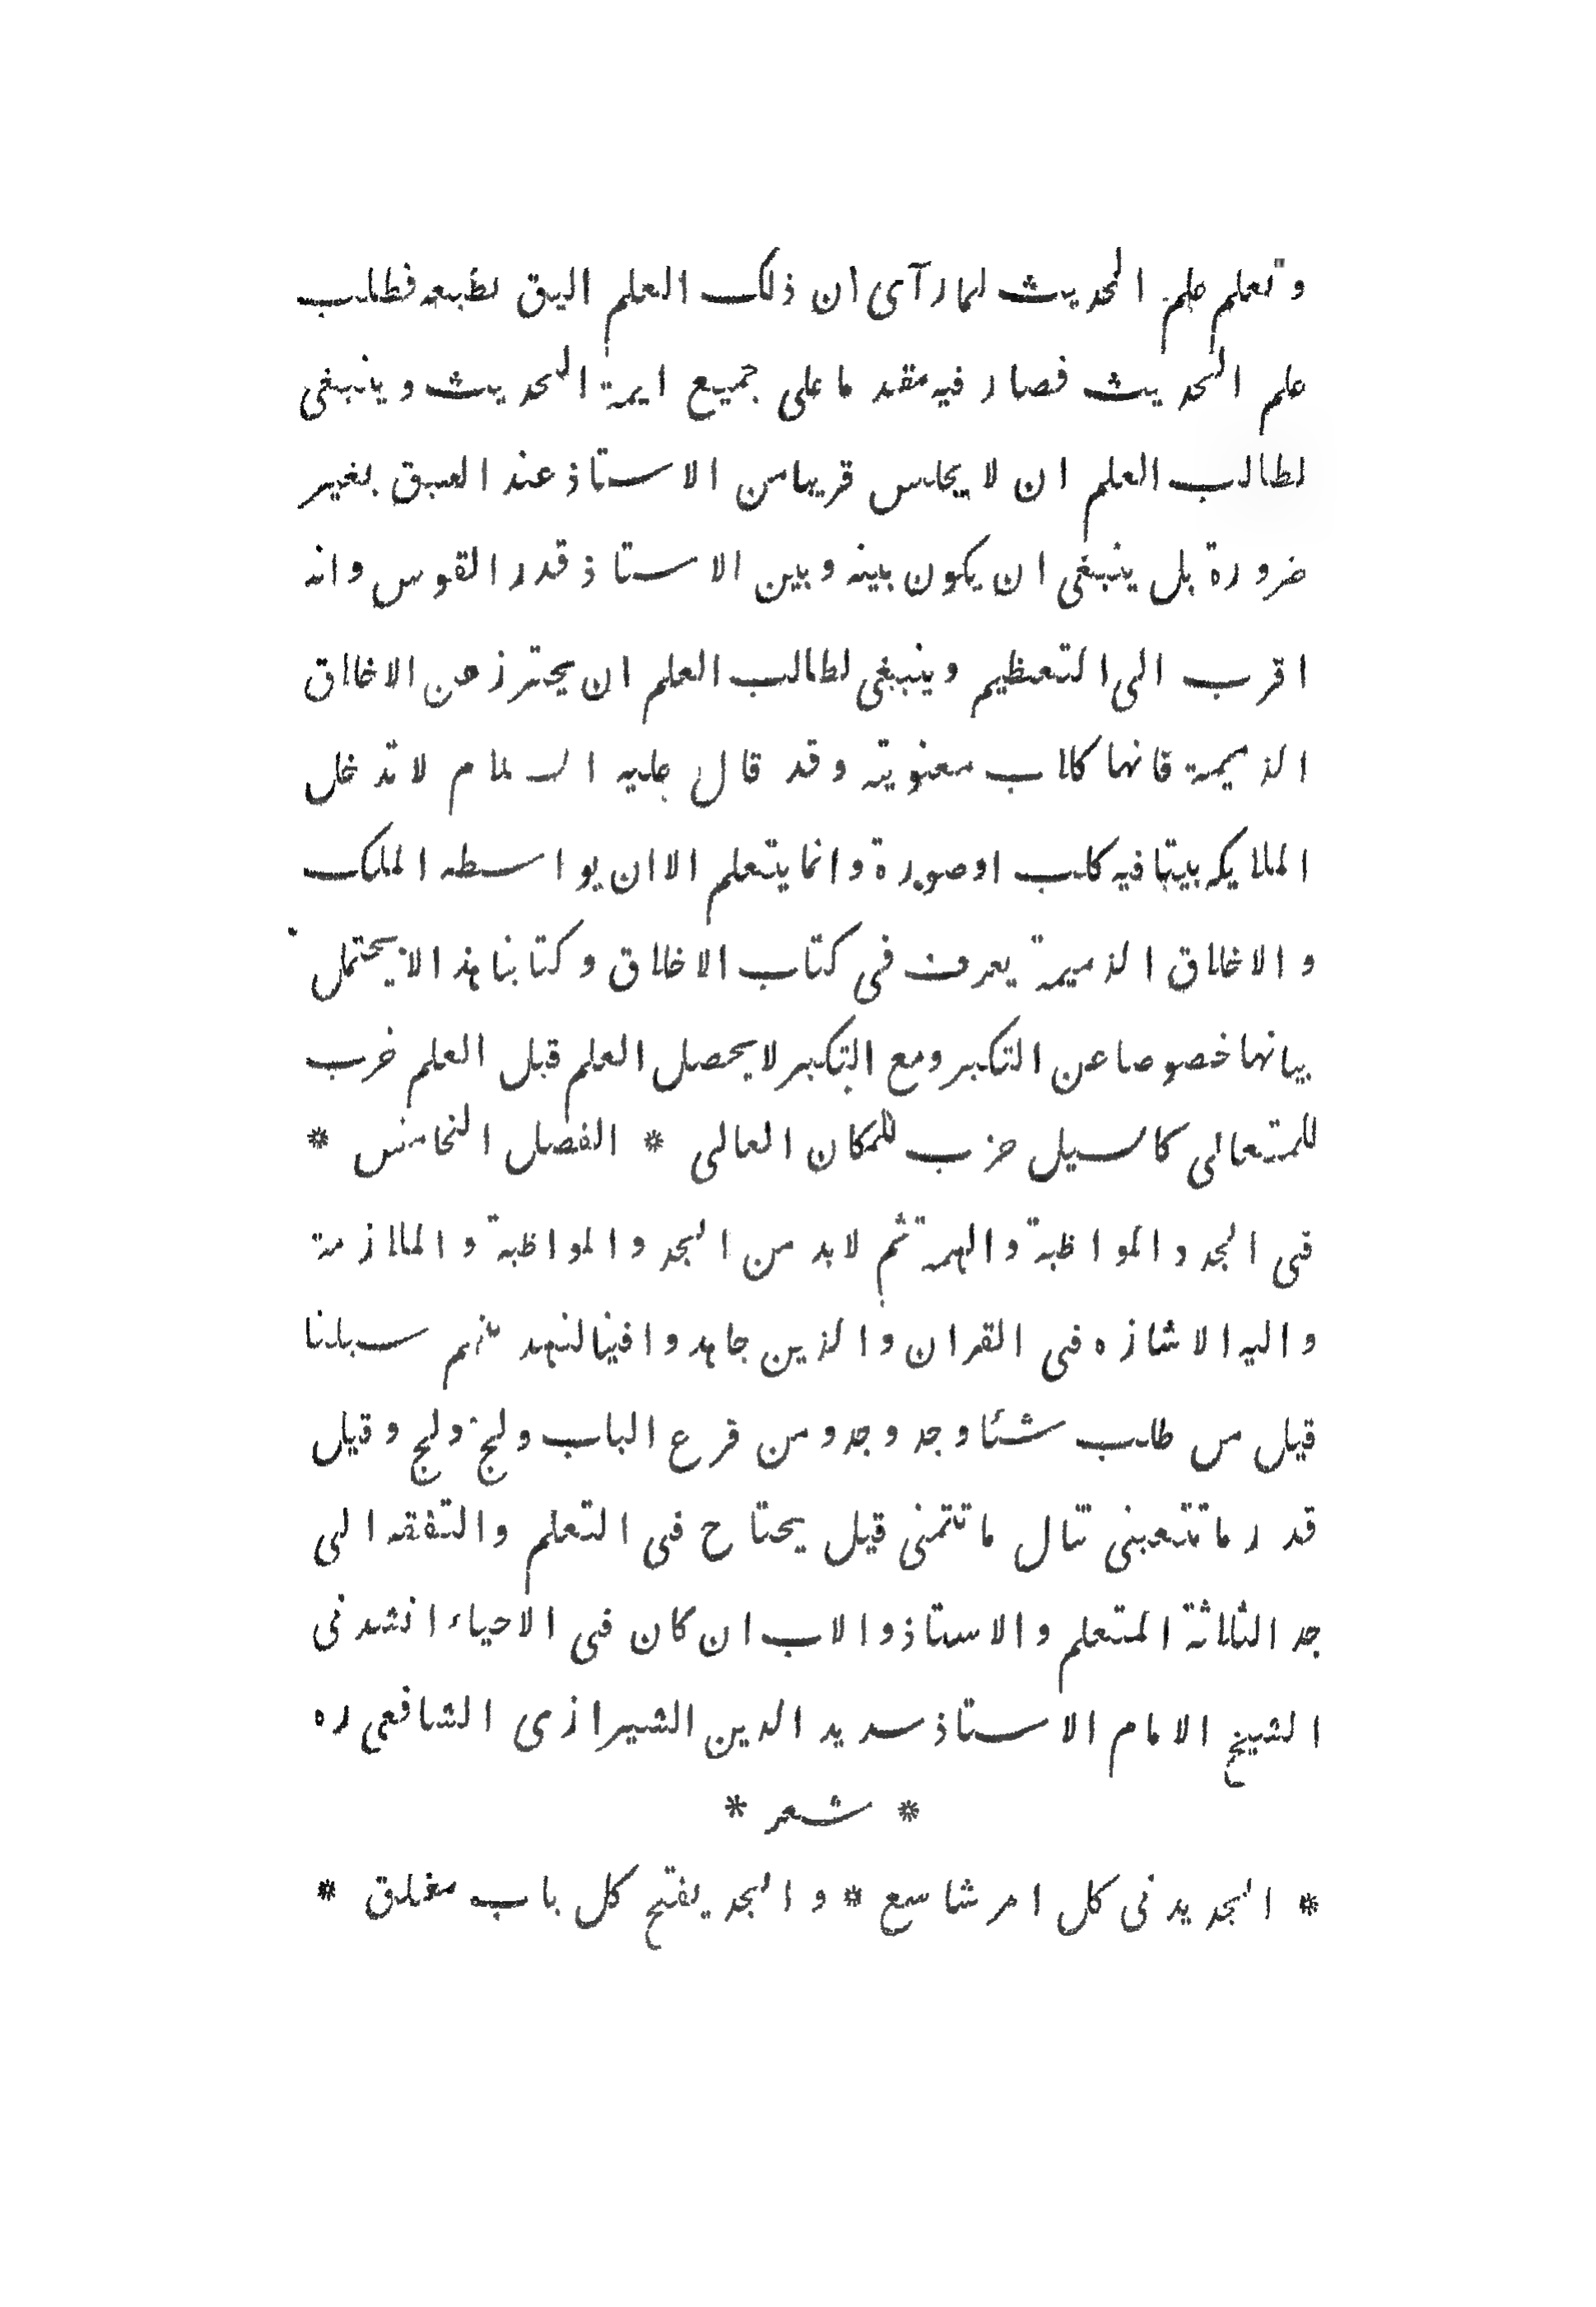 وتعلم علم الحديث لمارآى ان ذلك العلم اليق بطبعه فطلب
علم الحديث فصار فيه مقدما على جميع ايمة الحديث وينبغى
لطالب العلم ان لا يجلس قريبا من الاستاذ عند السبق بغير
ضرورة بل ينبغى ان يكون بينه وبين الاستاذ قدر القوس وانه
اقرب الى التعظيم وينبغى لطالب العلم ان يحترز عن الاخلاق
الذميمة فانها كلاب معنوية وقد قال عليه السلام لا تدخل
الملايكه بيتا فيه كلب اوصورة وانما يتعلم الاان بواسطه الملك
والاخلاق الذميمة يعرف فى كتاب الاخلاق وكتابنا هذا لا يحتمل
بيانها خصوصا عن التكبر ومع التكبر لا يحصل العلم قبل العلم خرب
للمتعالى كاسيل حزب للمكان العالى * الفصل الخامس *
فى الجد والمواظبة والهمة ثم لابد من الجد والمواظبة والملازمة
واليه الاشازه فى القران والذين جاهدوا فينا لنهدينهم سبلنا
قيل من طلب شئا وجد وجد ومن قرع الباب ولج ولج وقيل
قدر ما تتعبنى تنال ما تتمنى قيل يحتاج فى التعلم والتفقه الى
جد الثلاثة المتعلم والاستاذ والاب ان كان فى الاحياء انشدنى
الشيخ الامام الاستاذ سديد الدين الشيرازى الشافعى ره
* شعر *
* الجد يدنى كل امر شاسع * والجد يفتح كل باب مغلق *